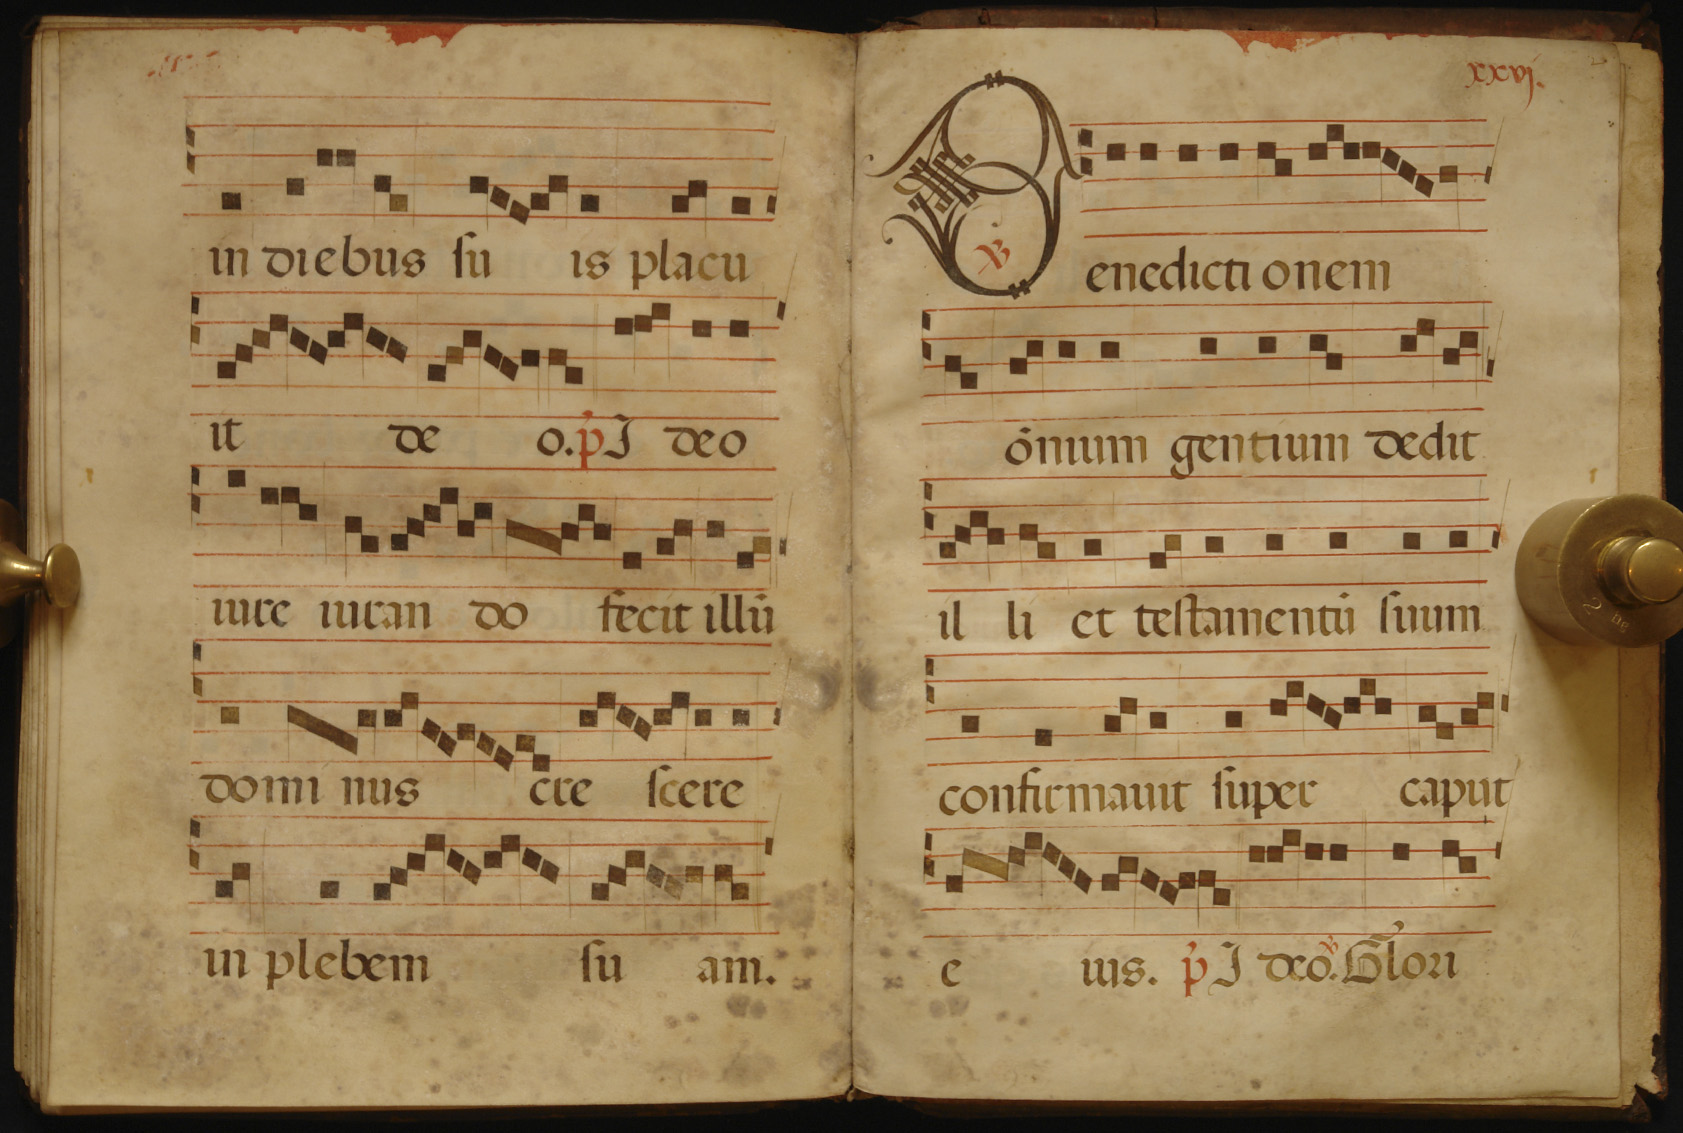 in diebus su is placu
it de o. p̃ I deo
iure iuran do fecit illũ
domi nus cre scere
in plebem su am.
xxvj.
B
enedicti onem
õnium gentium dedit
il li et testamentũ suum
confirmauit super caput
e ius. p̃ I deo. Glori